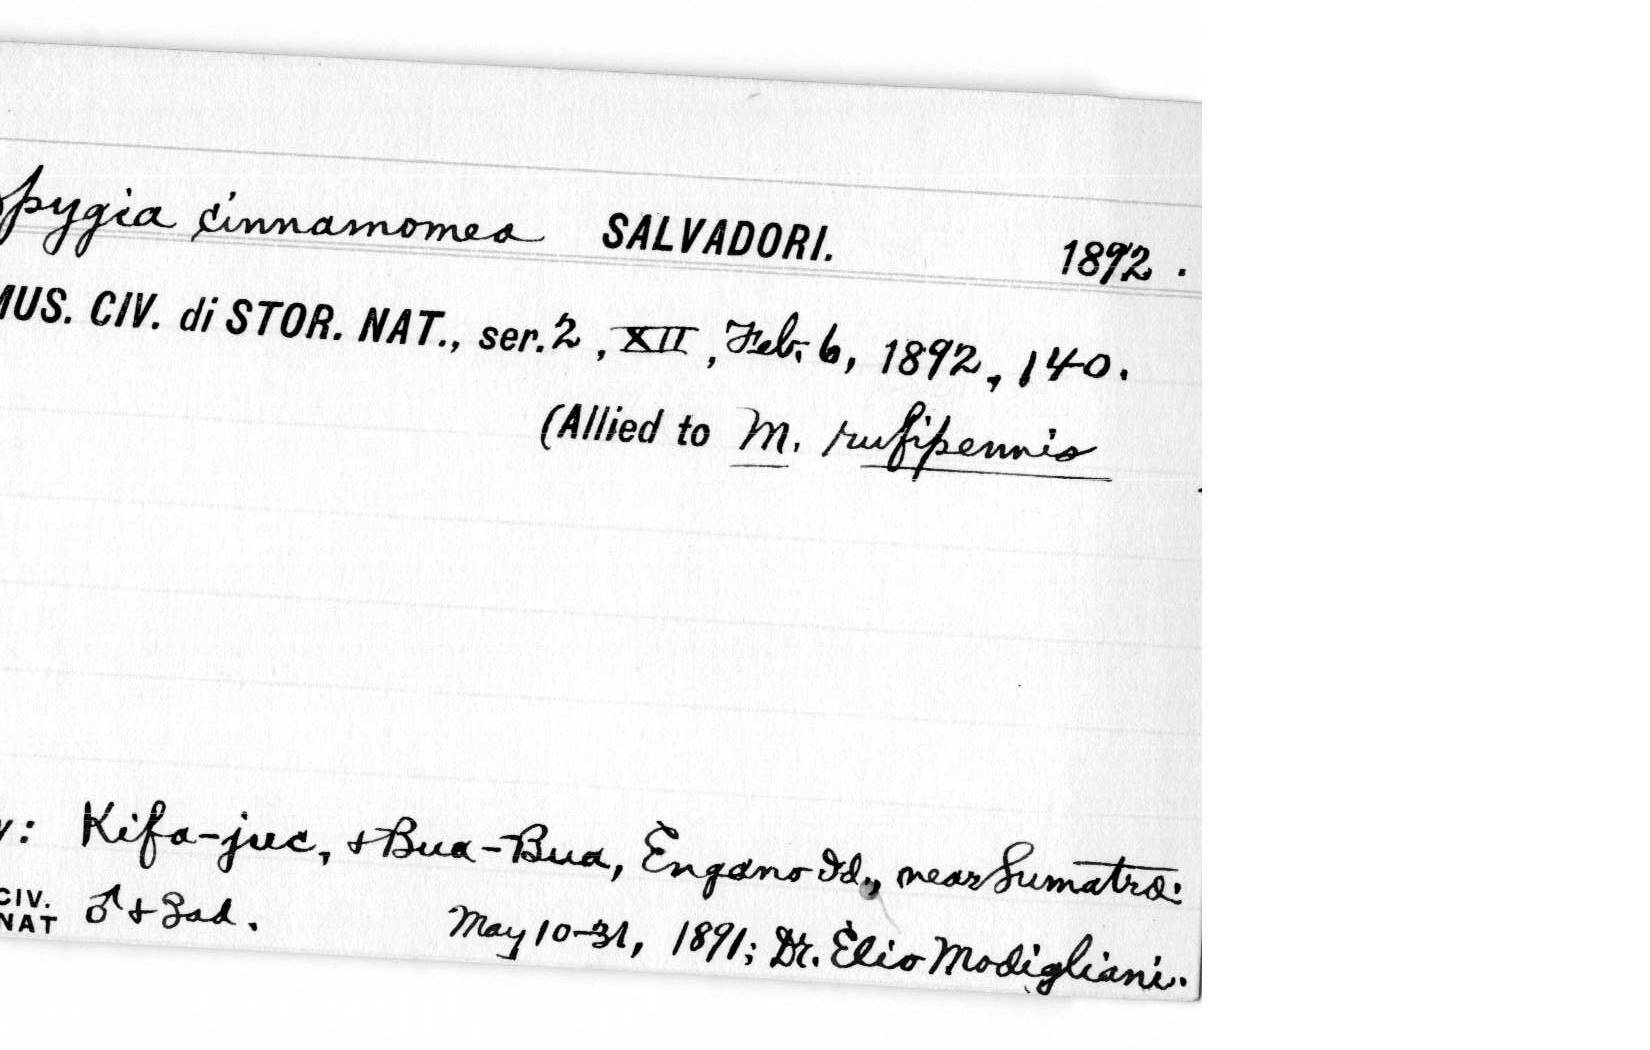 pygia cinnamomea SALVADORI. 1892.
MUS. CIV. di STOR. NAT., ser. 2, XII, Feb. 6, 1892, 140.
(Allied to M. rufipennis
y: Kifa-juc, + Bua-Bua, Engano Id., near Sumatra.
CIV. NAT ♂ + ad. May 10-31, 1891; Dr. Elio Modigliani.